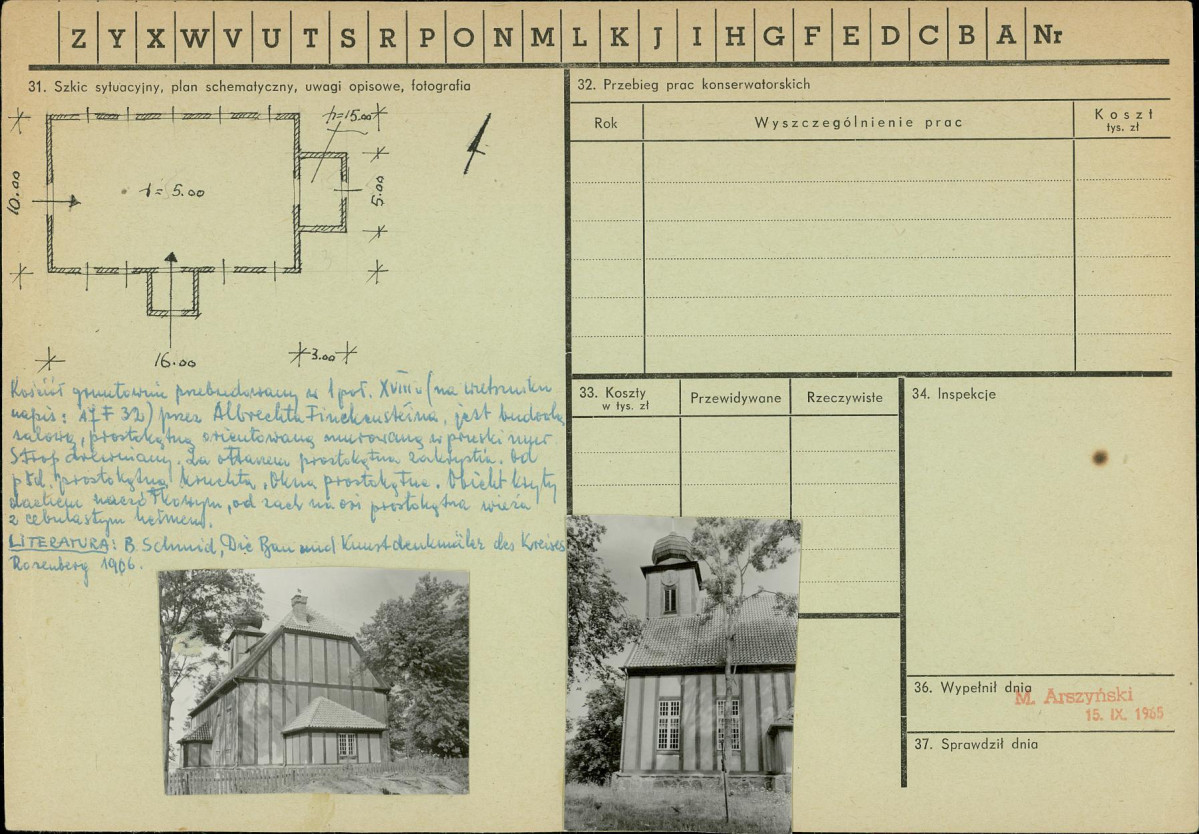 Z Y X W V U T S R P O N M L K J I H G F E D C B A Nr
31. Szkic sytuacyjny, plan schematyczny, uwagi opisowe, fotografia
h=15.00
10.00
h= 5.00
5.00
16.00
3.00
Kościół gruntownie przebudowany w 1 poł. XVIII w (na wietrzniku
napis: 17 F 32) przez Albrechta Finckensteina, jest budowlą
salową, prostokątną orientowaną murowaną w pruski mur.
Strop drewniany. Za ołtarzem prostokątna zakrystia. Od
płd. prostokątna kruchta, Okna prostokątne. Obiekt kryty
dachem naczółkowym, od zach na osi prostokątna wieża
z cebulastym hełmem.
LITERATURA: B. Schmid, Die Bau und Kunstdenkmäler des Kreises
Rosenberg 1906.
32. Przebieg prac konserwatorskich
Rok Wyszczególnienie prac Koszt
tys. zł
33. Koszty
w tys. zł
Przewidywane Rzeczywiste
34. Inspekcje
36. Wypełnił dnia
M. Arszyński
15. IX. 1965
37. Sprawdził dnia